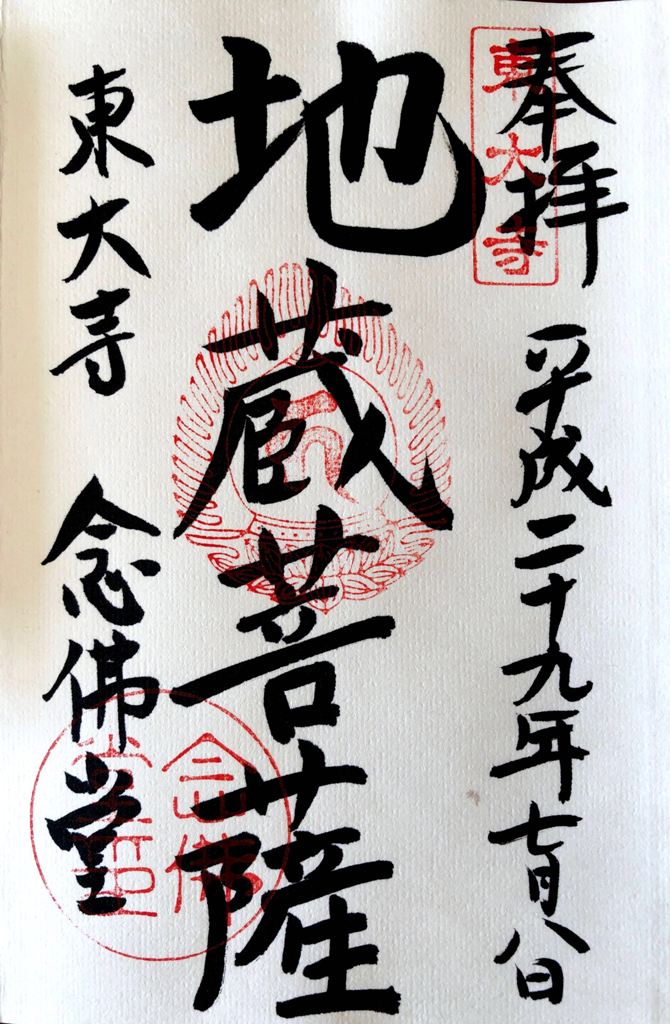 奉拝
東大寺
平成二十九年七月八日
地蔵菩薩
東大寺
念佛堂
念佛